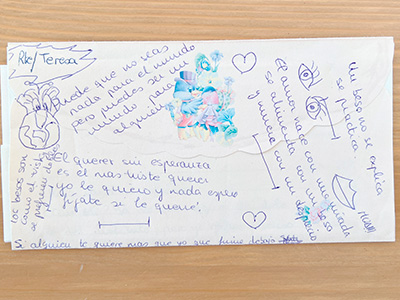 Rte/ Teresa
Puede que no seas
nada para el mundo
pero puedes ser un
mundo para
alguien
Un beso no se explica
se practica.
El amor nace con una mirada
se alimenta con un beso
y muere con un desprecio
los besos son
como el
se
El querer sin esperanza
es el mas triste querer
yo le quiero y nada espero
fijate si le queré.
Si alguien te quiere mas que yo que firme debajo